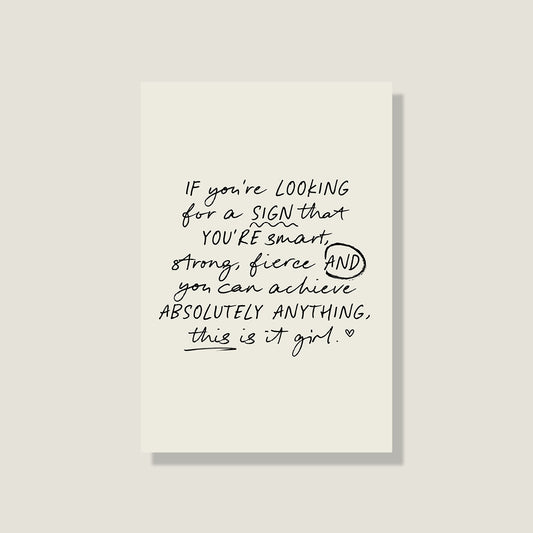 IF you're LOOKING
for a SIGN that
YOU'RE smart,
strong, fierce AND
you can achieve
ABSOLUTELY ANYTHING,
this is it girl.♡